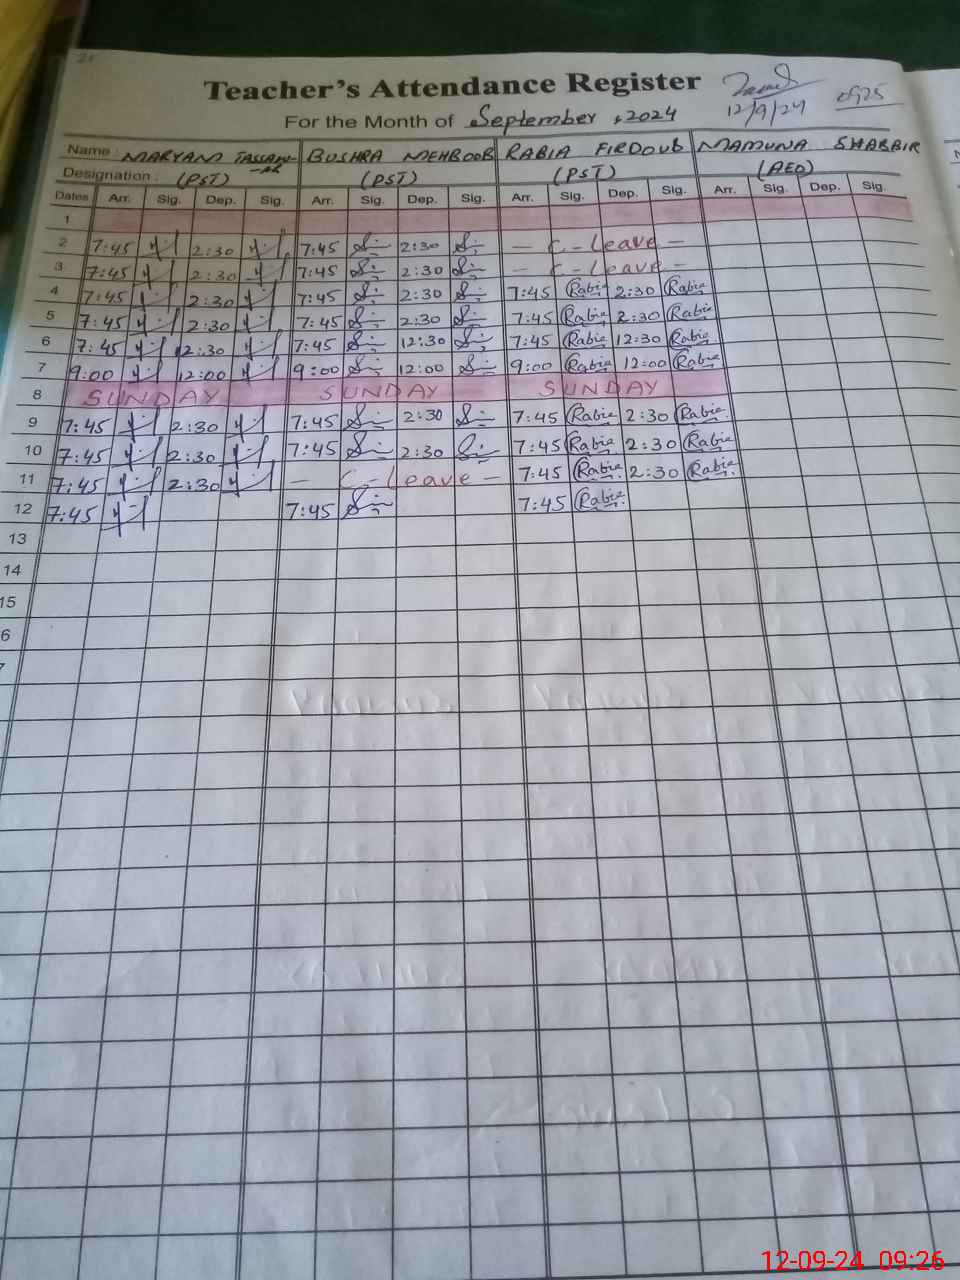 21
Teacher's Attendance Register
12/9/24 0925
For the Month of September, 2024
Name : MARYAM TASSAWAR BUSHRA MEHBOOB RABIA FIRDOUS MAMUNA SHABBIR
Designation : (PST) (PST) (PST) (AEO)
Dates Arr. Sig. Dep. Sig. Arr. Sig. Dep. Sig. Arr. Sig. Dep. Sig. Arr. Sig. Dep. Sig.
1
2 7:45 2:30 7:45 2:30 - C-Leave -
3 7:45 2:30 7:45 2:30 - C-Leave -
4 7:45 2:30 7:45 2:30 7:45 Rabia 2:30 Rabia
5 7:45 2:30 7:45 2:30 7:45 Rabia 2:30 Rabia
6 7:45 12:30 7:45 12:30 7:45 Rabia 12:30 Rabia
7 9:00 12:00 9:00 12:00 9:00 Rabia 12:00 Rabia
8 SUNDAY SUNDAY SUNDAY
9 7:45 2:30 7:45 2:30 7:45 Rabia 2:30 Rabia
10 7:45 2:30 7:45 2:30 7:45 Rabia 2:30 Rabia
11 7:45 2:30 - C-Leave - 7:45 Rabia 2:30 Rabia
12 7:45 7:45 7:45 Rabia
13
14
15
6
7
12-09-24 09:26